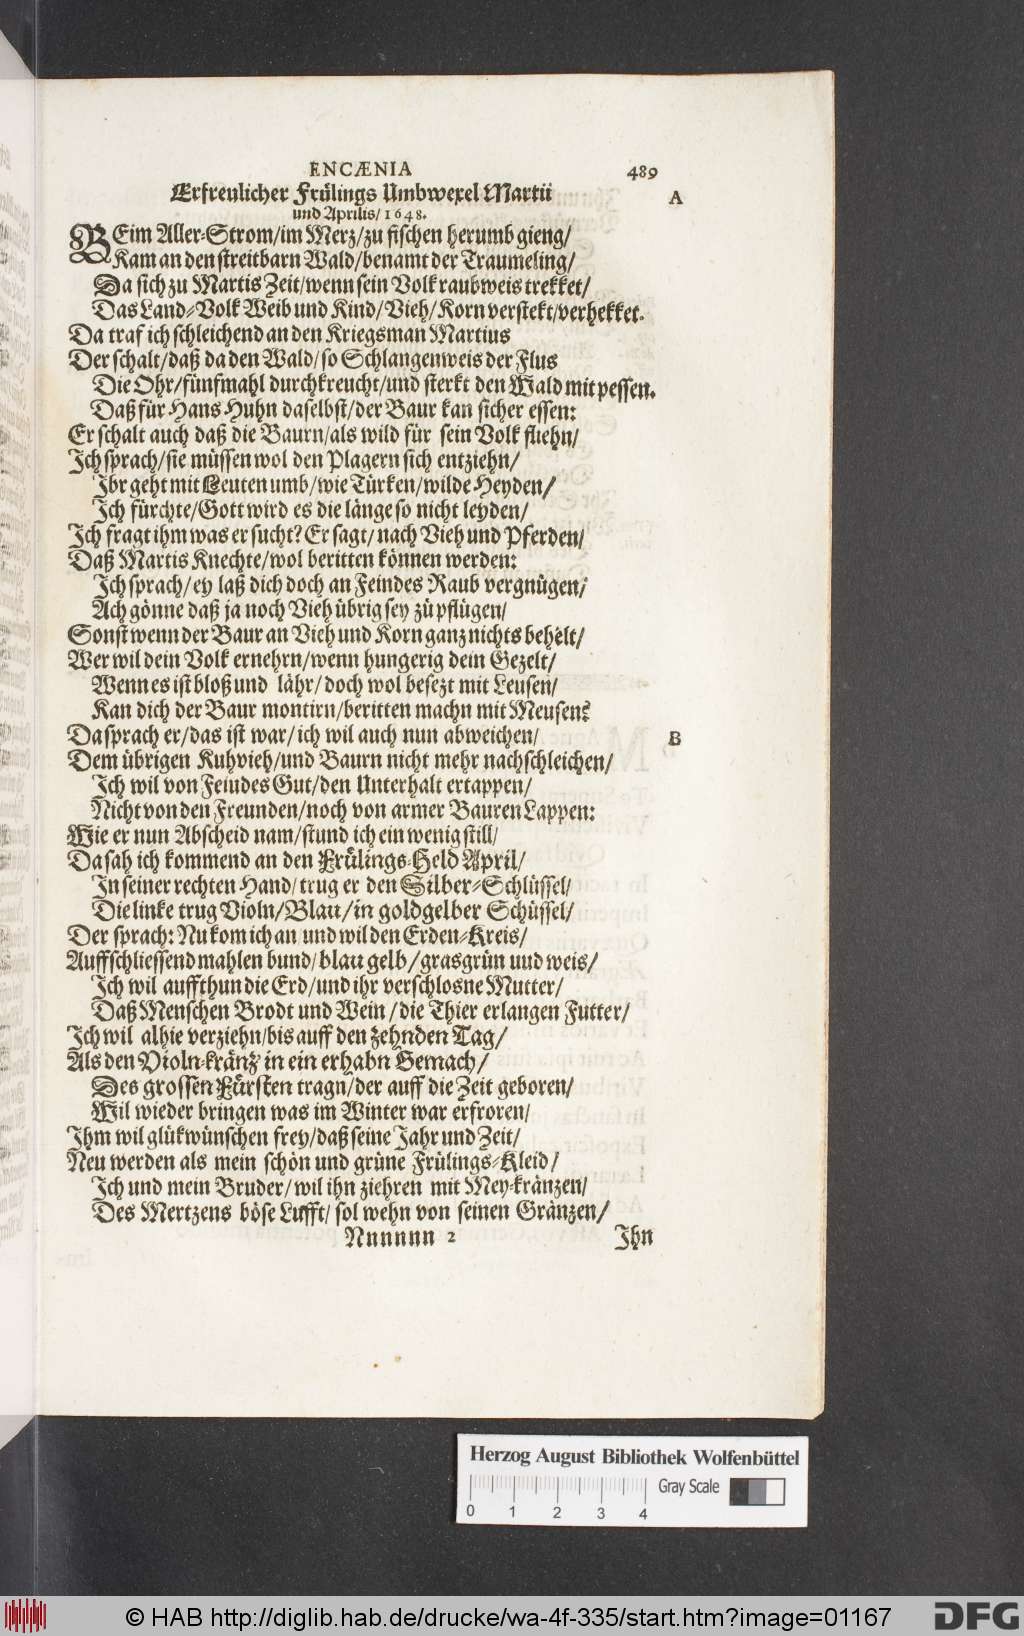 ENCÆNIA 489
Erfreulicher Frülings Umbwexel Martii A
und Aprilis/ 1648.
BEim Aller-Strom/im Merz/zu fischen herumb gieng/
Kam an den streitbarn Wald/benamt der Traumeling/
Da sich zu Martis Zeit/wenn sein Volk raubweis trekket/
Das Land-Volk Weib und Kind/Vieh/Korn verstekt/verhekket.
Da traf ich schleichend an den Kriegsman Martius
Der schalt/daß da den Wald/so Schlangenweis der Flus
Die Ohr/fünfmahl durchkreucht/und sterkt den Wald mit pessen.
Daß für Hans Huhn daselbst/der Baur kan sicher essen:
Er schalt auch daß die Baurn/als wild für sein Volk fliehn/
Ich sprach/sie müssen wol den Plagern sich entziehn/
Ihr geht mit Leuten umb/wie Türken/wilde Heyden/
Ich fürchte/Gott wird es die länge so nicht leyden/
Ich fragt ihm was er sucht? Er sagt/nach Vieh und Pferden/
Daß Martis Knechte/wol beritten können werden:
Ich sprach/ey laß dich doch an Feindes Raub vergnügen/
Ach gönne daß ja noch Vieh übrig sey zü pflügen/
Sonst wenn der Baur an Vieh und Korn ganz nichts behelt/
Wer wil dein Volk ernehrn/wenn hungerig dein Gezelt/
Wenn es ist bloß und lähr/doch wol besezt mit Leusen/
Kan dich der Baur montirn/beritten machn mit Meusen?
Da sprach er/das ist war/ich wil auch nun abweichen/ B
Dem übrigen Kuhvieh/und Baurn nicht mehr nachschleichen/
Ich wil von Feindes Gut/den Unterhalt ertappen/
Nicht von den Freunden/noch von armer Bauren Lappen:
Wie er nun Abscheid nam/stund ich ein wenig still/
Da sah ich kommend an den Frülings-Held April/
In seiner rechten Hand/trug er den Silber-Schlüssel/
Die linke trug Violn/Blau/in goldgelber Schüssel/
Der sprach: Nu kom ich an und wil den Erden-Kreis/
Auffschliessend mahlen bund/blau gelb/grasgrün uud weis/
Ich wil auffthun die Erd/und ihr verschlosne Mutter/
Daß Menschen Brodt und Wein/die Thier erlangen Futter/
Ich wil alhie verziehn/bis auff den zehnden Tag/
Als den Violn-kränz in ein erhabn Gemach/
Des grossen Fürsten tragn/der auff die Zeit geboren/
Wil wieder bringen was im Winter war erfroren/
Ihm wil glükwünschen frey/daß seine Jahr und Zeit/
Neu werden als mein schön und grüne Frülings-Kleid/
Ich und mein Bruder/wil ihn ziehren mit Mey-kränzen/
Des Mertzens böse Lufft/sol wehn von seinen Gränzen/
Nnnnnn 2 Ihn
Herzog August Bibliothek Wolfenbüttel
0 1 2 3 4 Gray Scale
© HAB http://diglib.hab.de/drucke/wa-4f-335/start.htm?image=01167 DFG